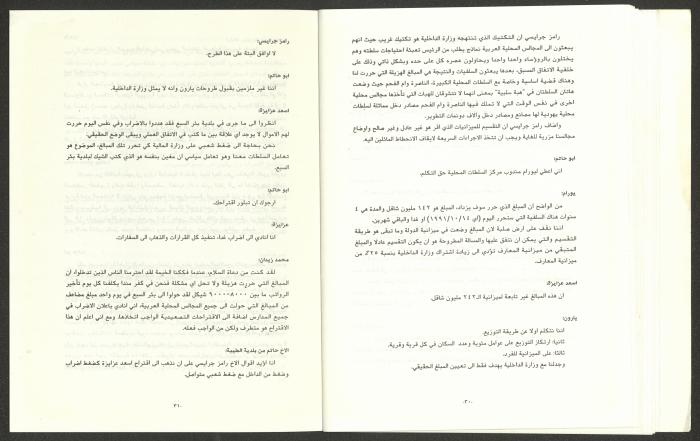 رامز جرايسي ان التكتيك الذي تنتهجه وزارة الداخلية هو تكتيك غريب حيث انهم
يبعثون الى المجالس المحلية العربية نماذج يطلب من الرئيس تعبئة احتياجات سلطته وهم
يختلفون بالرؤساء واحدا واحدا ويحاولون عصره كل على حده وبشكل ذاتي وذلك على
خلفية الاتفاق المسبق، بعدها يبعثون السلفيات والنتيجة هي المبالغ الهزيلة التي حررت لنا
وهناك قضية اساسية وخاصة مع السلطات المحلية الكبيرة، الناصرة وام الفحم حيث وضعت
هاتان السلطتان في "هبة سلبية" بمعنى انهما لا تتشوقان للهبات التي تأخذها مجالس محلية
اخرى في نفس الوقت التي لا تملك فيها الناصرة وام الفحم مصادر دخل مماثلة لسلطات
محلية يهودية لها مصانع ومصادر دخل وآلاف دونمات التطوير.
واضاف رامز جرايسي ان التقسيم للميزانيات الذي اقر هو غير عادل وغير صالح واوضاع
مجالسنا مزرية للغاية ويجب ان تتخذ الاجراءات السريعة لايقاف الانحطاط المائلين اليه.
ابو حاتم:
اني اعطي ليورام مندوب مركز السلطات المحلية حق التكلم.
يورام:
من الواضح ان المبلغ الذي حرر سوف يزداد، المبلغ هو ١٤٢ مليون شاقل والمدة هي ٤
سنوات هناك السلفية التي ستحرر اليوم (اي ١٩٩١/١٠/١٤) او غدا والباقي شهرين.
اننا نقف على ارض صلبة لان المبالغ وضعت في ميزانية الدولة وما تبقى هو طريقة
التقسيم والتي يمكن ان نتفق عليها والمسألة المطروحة هو ان يكون التقسيم عادلا والمبلغ
المتبقي من ميزانية المعارف تؤدي الى زيادة اشتراك وزارة الداخلية بنسبة ٢٥٪ من
ميزانية المعارف.
اسعد عزايزة:
ان هذه المبالغ غير تابعة لميزانية الـ٢٤٢ مليون شاقل.
يارون:
اننا نتكلم اولا عن طريقة التوزيع.
ثانيا: ارتكاز التوزيع على عوامل مئوية وعدد السكان في كل قرية وقرية.
ثالثا: على الميزانية للفرد.
وجدلنا مع وزارة الداخلية يهدف فقط الى تعيين المبلغ الحقيقي.
-٣٠-
رامز جرايسي:
لا اوافق البتة على هذا الطرح.
ابو حاتم:
اننا غير ملزمين بقبول طروحات يارون وانه لا يمثل وزارة الداخلية.
اسعد عزايزة:
انظروا الى ما جرى في بلدية بئر السبع فقد هددوا بالاضراب وفي نفس اليوم حررت
لهم الاموال لا يوجد اي علاقة بين ما كتب في الاتفاق العملي ويبقى الوضع الحقيقي.
نحن بحاجة الى ضغط شعبي على وزارة المالية كي تحرر تلك المبالغ، الموضوع هو
تعامل السلطات معنا وهو تعامل سياسي ان مغين بنفسه هو الذي كتب الشيك لبلدية بئر
السبع.
ابو حاتم:
ارجوك ان تبلور اقتراحك.
عزايزة:
انا انادي الى اضراب غدا، تنفيذ كل القرارات والذهاب الى السفارات.
محمد زيدان:
لقد كنت من دعاة السلام، عندما فككنا الخيمة لقد احترمنا الناس الذين تدخلوا، ان
المبالغ التي حررت هزيلة ولا تحل اي مشكلة فنحن في كفر مندا يكلفنا كل يوم تأخير
الرواتب ما بين ٨٠٠٠-٩٠٠٠ شيكل لقد حولوا الى بئر السبع في يوم واحد مبلغ مضاعف
من المبالغ التي حولت الى جميع المجالس المحلية العربية، اني انادي باعلان الاضراب في
جميع المدارس اضافة الى الاقتراحات التصعيدية الواجب اتخاذها، ومع اني اعلم ان هذا
الاقتراح هو متطرف ولكن من الواجب فعله.
الاخ حاتم من بلدية الطيبة:
انا اؤيد اقوال الاخ رامز جرايسي على ان نذهب الى اقتراح اسعد عزايزة كضغط اضراب
وضغط من الداخل مع ضغط شعبي متواصل.
-٣١-